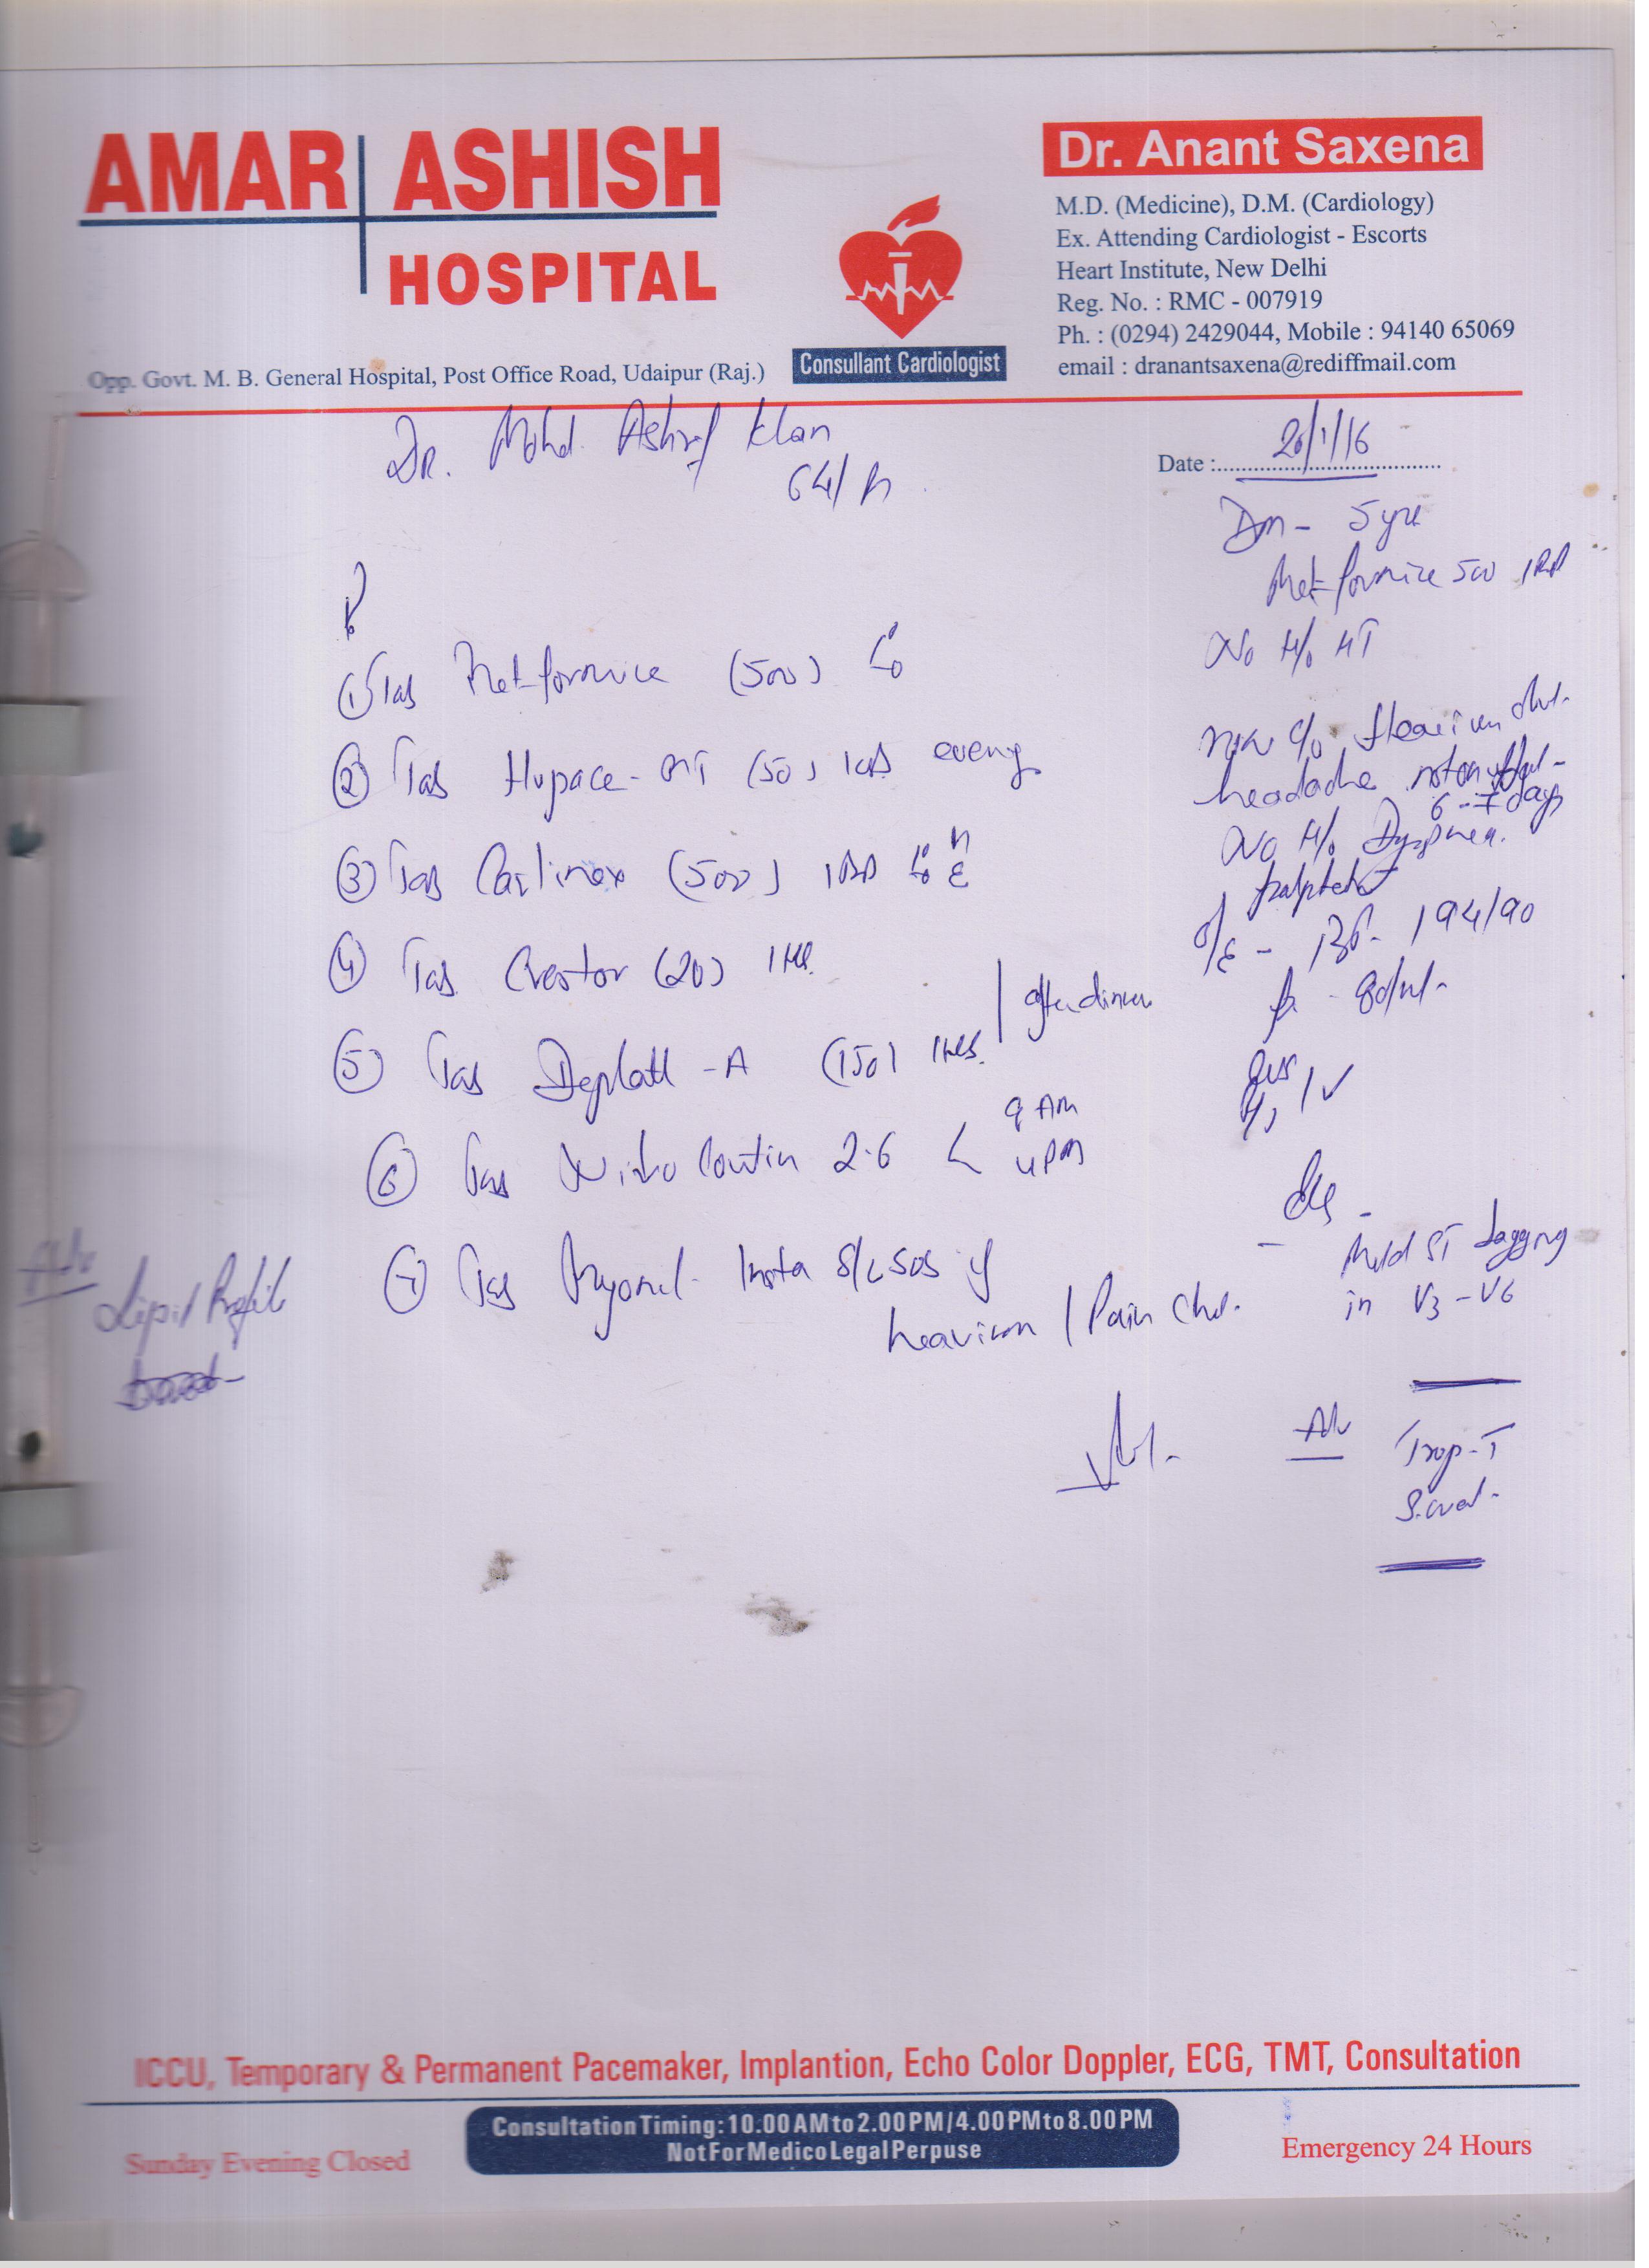 AMAR ASHISH
HOSPITAL
Opp. Govt. M. B. General Hospital, Post Office Road, Udaipur (Raj.)
Consullant Cardiologist
Dr. Anant Saxena
M.D. (Medicine), D.M. (Cardiology)
Ex. Attending Cardiologist - Escorts
Heart Institute, New Delhi
Reg. No. : RMC - 007919
Ph. : (0294) 2429044, Mobile : 94140 65069
email : dranantsaxena@rediffmail.com
Dr. Mohd. Ashraf Khan
64/M
Date : 20/1/16
DM - 5 yrs
Metformin 500 1BD
No H/o HT
① Tab Metformin (500)
② Tab (50) evening
③ Tab (500) 1BD
④ Tab Crestor (20) 1 HS
⑤ Tab Deplatt - A (150) 1 HS
after dinner
⑥ Tab Nitrocontin 2.6 < 9 AM
4 PM
⑦ Tab Insta S/L SOS if
heaviness / Pain Chest.
Now c/o Heaviness chest
headache
6-7 days
No H/o Dyspnea.
O/E - BP - 194/90
P -
Mild ST sagging
in V3 - V6
Adv
Trop-T
Adv
Lipid Profile
ICCU, Temporary & Permanent Pacemaker, Implantion, Echo Color Doppler, ECG, TMT, Consultation
Consultation Timing: 10.00 AM to 2.00 PM / 4.00 PM to 8.00 PM
Not For Medico Legal Perpuse
Sunday Evening Closed
Emergency 24 Hours